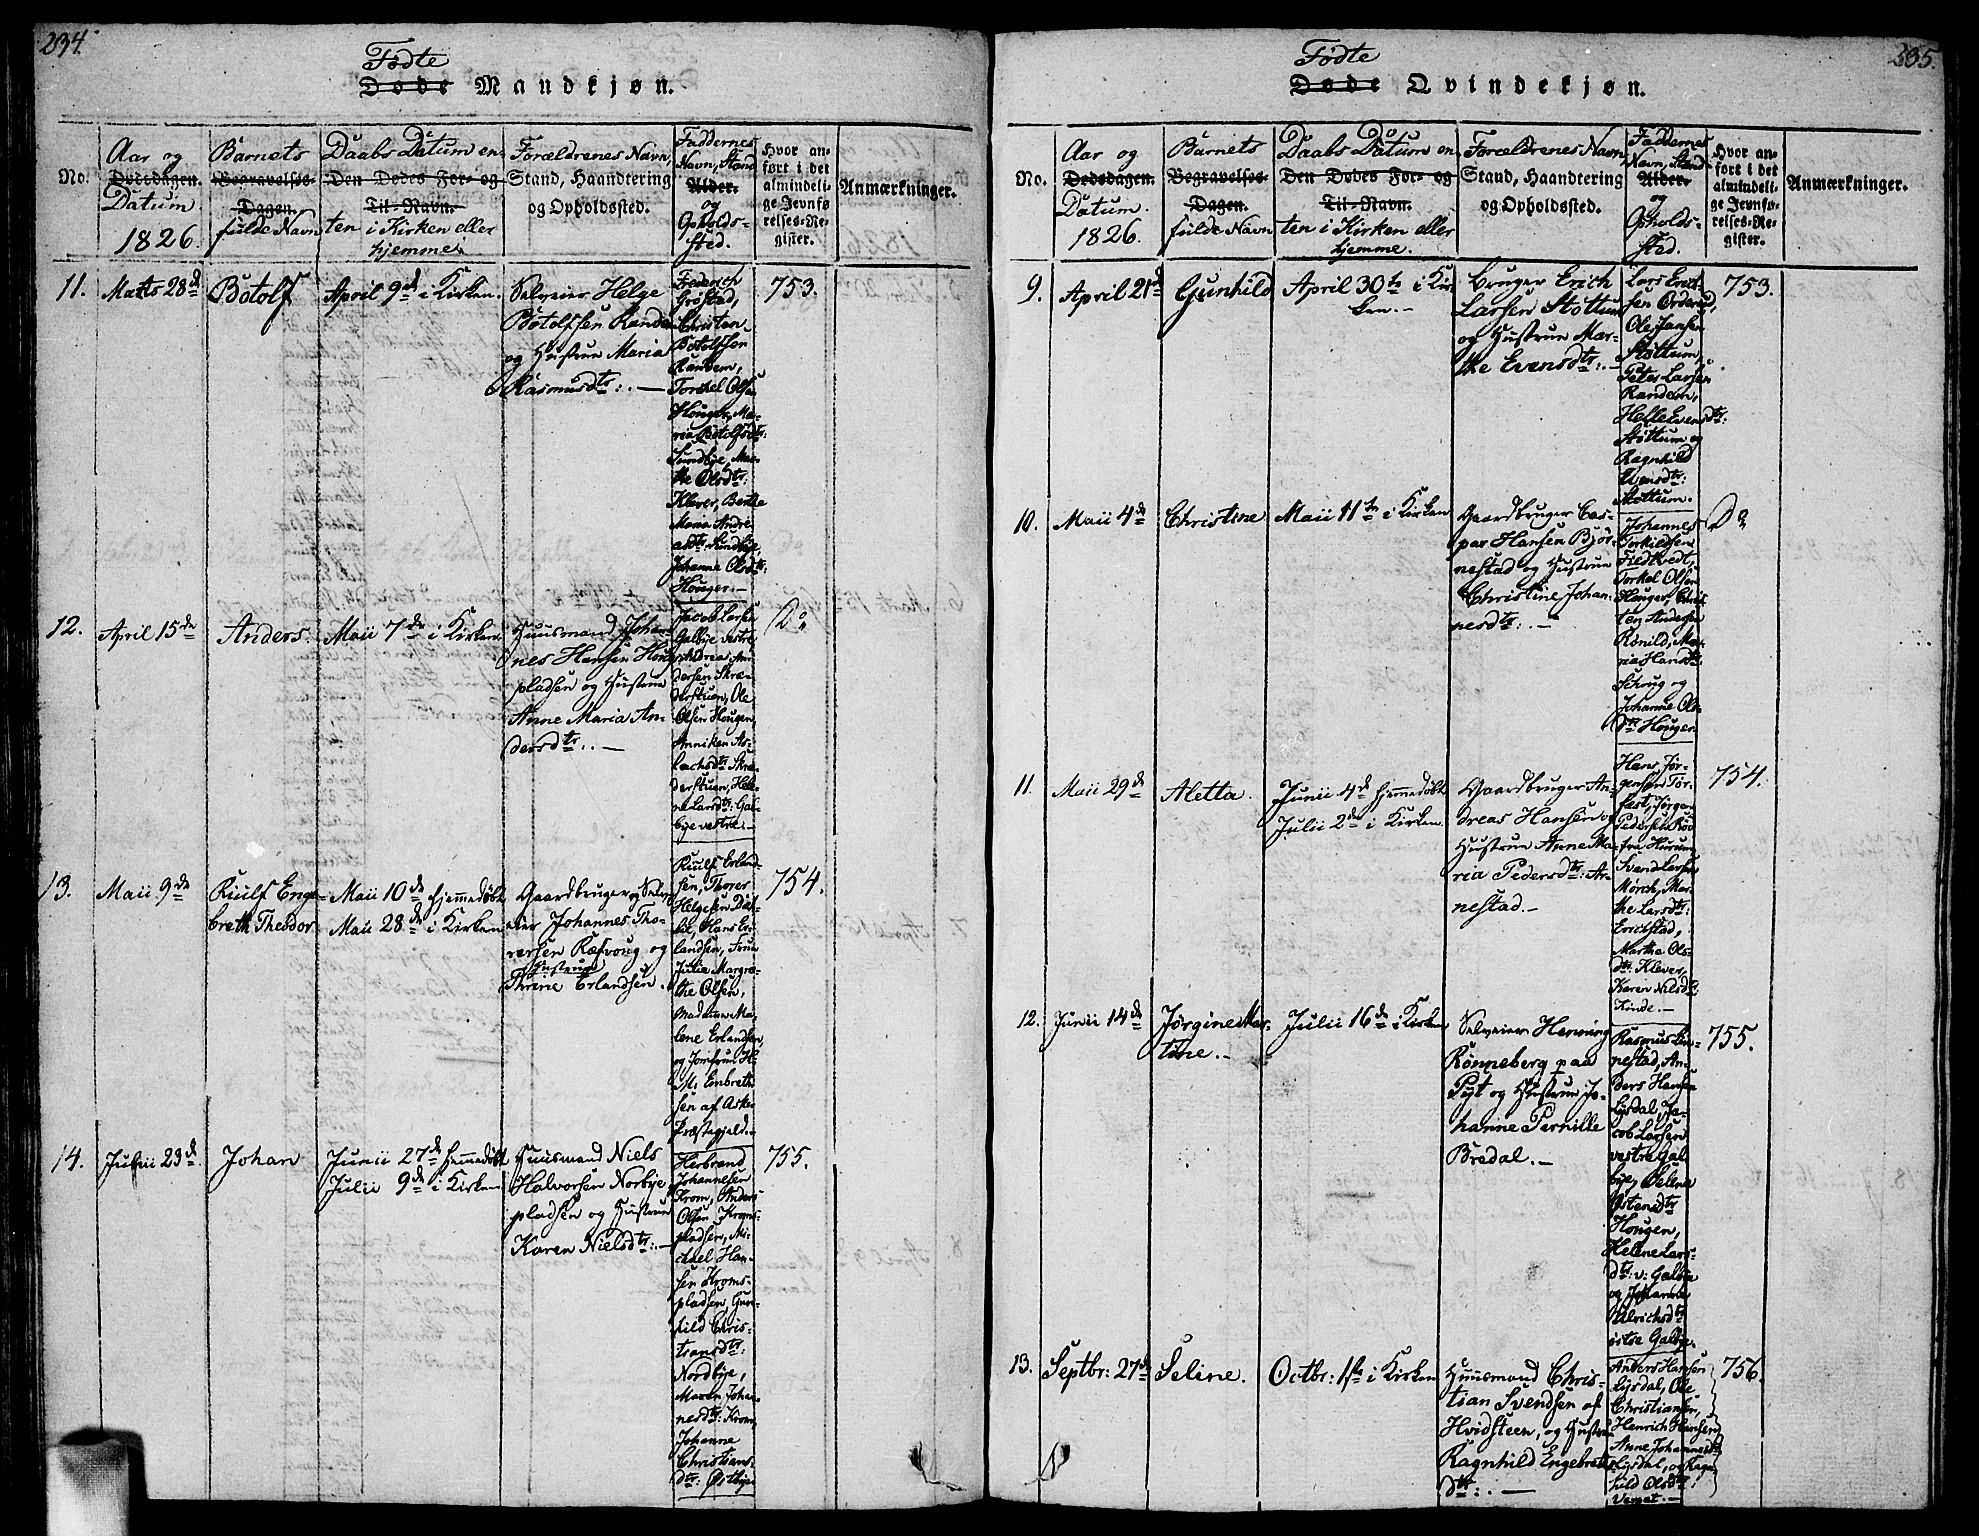 234.
Födte
Døde Mandkjøn.
No.
Aar og
Dødsdagen.
Datum.
1826.
Barnets
Begravelses-
Dagen.
fulde Navn
Daabs Datum en-
Den Dødes For- og
Til-Navn.
ten i Kirken eller
hjemme.
Forældrenes Navn,
Stand, Haandtering
og Opholdssted.
Faddernes
Navn, Stand
Alder.
og
Opholds-
sted.
Hvor an-
ført i det
almindeli-
ge Jevnfø-
relses-Re-
gister.
Anmærkninger.
11.
Marts 28d
Botolf
April 9d i Kirken.
Selveier Helge
Botolfsen Randem
og Hustrue Maria
Rasmusdtr:. —
Frederich
Grøstad,
Christen
Botolfsen
Randem,
Torchel Olsen
Houger, Ma-
ria Botolfsdtr:
Sundbye, Mar-
the Olsdtr:
Klever, Berthe
Maria Andre-
asdtr: Sundbye,
Johanne Olsdtr:
Houger. —
753.
12.
April 15de
Anders.
Maii 7de i Kirken.
Huusmand Johan-
nes Hansen Houg-
pladsen og Hustrue
Anne Maria An-
dersdtr:. —
Jacob Larsen
Galbye vestre,
Andreas An-
dersen Skræ-
derstuen, Ole
Olsen Hougen,
Anniken As-
lachsdtr Skræ-
derstuen, Hele-
ne Larsdtr: Gal-
bye vestre. —
Do
13.
Maii 9de
Ruulf Enge-
breth Theodor
Maii 10de hjemmedøbt
Maii 28de i Kirken
Gaardbruger og Selv-
eier Johannes Tho-
rersen Ræfvoug og
Hustrue
Thrine Erlandsen.
Ruulf Erland-
sen, Thorer
Helgesen Dæh-
li, Hans Er-
landsen, Frue
Julia Margre-
the Olsen,
Madame Ma-
lene Erlandsen,
og Jomfrue H.
M. Embreth-
sen af Asker
Præstegjeld. —
754.
14.
Junii 23d.
Johan
Junii 27de hjemmedøbt
Julii 9de i Kirken
Huusmand Niels
Halvorsen Norbye-
pladsen og Hustrue
Karen Nielsdtr:. —
Herbrand
Johannesen
Krom, Anders
Olsen Kroms-
pladsen, Mi-
chel Han-
sen Kroms-
pladsen, Gun-
hild Chris-
tiansdtr:
Nordbye,
Maren Johan-
nesdtr: Krom,
Johanne
Christians-
dtr: Østbye
755.
235.
Födte
Døde Qvindekjøn.
No.
Aar og
Dødsdagen.
Datum.
1826.
Barnets
Begravelses-
Dagen.
fulde Navn
Daabs Datum en-
Den Dødes For- og
Til-Navn.
ten i Kirken eller
hjemme.
Forældrenes Navn
Stand, Haandtering
og Opholdssted.
Faddernes
Navn, Stand
Alder.
og
Opholds-
sted.
Hvor an-
ført i det
almindeli-
ge Jevnfø-
relses-Re-
gister.
Anmærkninger.
9.
April 21d
Gunhild
April 30te i Kir-
ken. —
Bruger Erich
Larsen Stöttum
og Hustrue Mar-
the Evensdtr:. —
Lars Erich-
sen Orderud,
Ole Jansen
Stöttum,
Peter Larsen
Randem,
Helle Evensdtr:
Stöttum og
Ragnhild
Evensdtr:
Stöttum.
753.
10.
Maii 4de
Christine
Maii 11te i Kirken
Gaardbruger Cas-
par Hansen Bjør-
nestad og Hustrue
Christine Johan-
nesdtr:. —
Johannes
Torkildsen
Fredtvedt,
Torkel Olsen
Houger, Chris-
ten Andersen
Rönild, Ma-
ria Hansdtr:
Schoug og
Johanne Ols-
dtr Houger.
Do
11.
Maii 29de
Aletta.
Junii 4de hjemmedøbt
Julii 2de i Kirken.
Gaardbruger An-
dreas Hansen og
Hustrue Anne Ma-
ria Pedersdtr: Ar-
nestad. —
Hans Jør-
gensen Tor-
fast, Jørgen
Pedersen Röd
fra Hurum,
Svend Larsen
Mörch, Mar-
the Larsdtr:
Erichstad,
Marthe Ols-
dtr: Klever,
Karen Nilsdtr
Kinde. —
754.
12.
Junii 14de
Jørgine Mar-
tine. —
Julii 16de i Kirken
Selveier Henning
Rönneberg paa
Pyt og Hustrue Jo-
hanne Pernille
Bredal. —
Rasmus Lin-
nestad, An-
ders Hansen
Lysdal, Ja-
cob Larsen
vestre Gal-
bye, Seline
Østensdtr
Hougen,
Helene Lars-
dtr: v: Galbye
og Johanne
Ulrichsdtr
østre Galbye.
755.
13.
Septbr: 27de
Seline.
Octbr: 1ste i Kirken
Huusmand Chris-
tian Svendsen af
Hvidsteen, og Hustrue
Ragnhild Engebreths-
dtr:. —
Anders Hansen
Lysdal, Ole
Christiansen,
Henrich Hansen
Anne Johannesdtr
Lysdal, og Ragn-
hild Olsdtr
756.